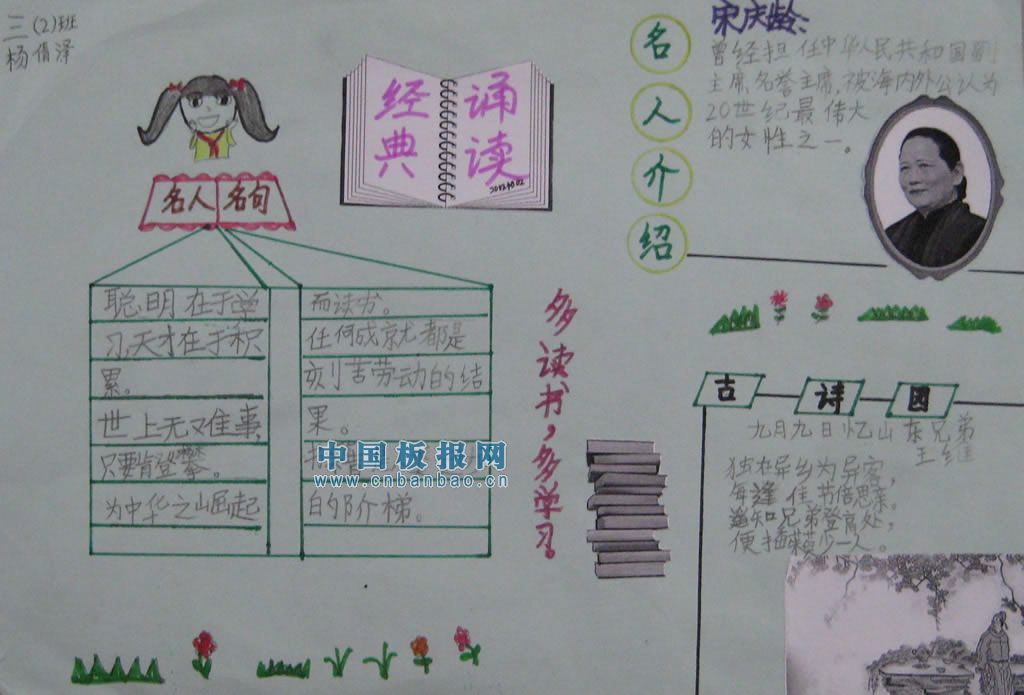 三(2)班
杨倩泽
经典
诵读
名人名句
聪明在于学
习,天才在于积
累。
世上无难事,
只要肯登攀。
为中华之崛起
而读书。
任何成就都是
刻苦劳动的结
果。
自的阶梯。
中国板报网
www.cnbanbao.cn
多读书,多学习。
名人介绍
宋庆龄:
曾经担任中华人民共和国副
主席,名誉主席,被海内外公认为
20世纪最伟大
的女性之一。
古诗园
九月九日忆山东兄弟
王维
独在异乡为异客,
每逢佳节倍思亲。
遥知兄弟登高处,
便插茱萸少一人。